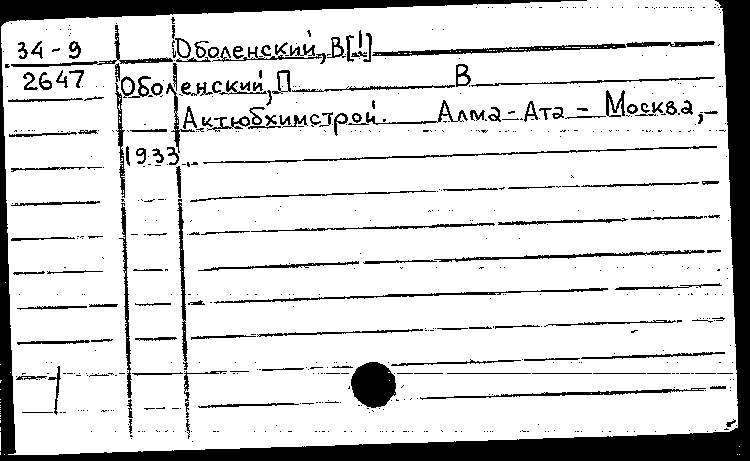 34-9 Оболенский, В[!]
2647 Оболенский, П В
Актюбхимстрой. Алма-Ата - Москва,
1933.